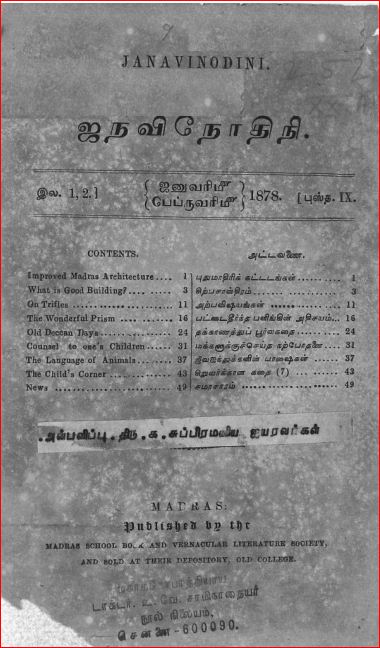 JANAVINODINI.
ஜநவிநோதிநி.
இல. 1, 2.] { ஜனுவரிமீ 1878. [புஸ்த. IX.
பேப்ருவரிமீ
CONTENTS.
Improved Madras Architecture .... 1
What is Good Building? .... 3
On Trifles .... 11
The Wonderful Prism .... 16
Old Deccan Days .... 24
Counsel to one's Children .... 31
The Language of Animals .... 37
The Child's Corner .... 43
News .... 49
அட்டவணை.
புதுமாதிரிக் கட்டடங்கள் .... 1
சிற்பசாஸ்திரம் .... 3
அற்பவிஷயங்கள் .... 11
பட்டைதீர்ந்த பளிங்கின் அதிசயம் ... 16
தக்காணத்துப் பூர்வகதை .... 24
மக்களுக்குச்செய்த கற்போதனை .... 31
ஜீவஜந்துக்களின் பாஷைகள் .... 37
சிறுவர்க்கான கதை (7) .... 43
சமாசாரம் .... 49
அன்பளிப்பு . திரு . க . சுப்பிரமணிய ஐயரவர்கள்
MADRAS:
Published by the
MADRAS SCHOOL BOOK AND VERNACULAR LITERATURE SOCIETY,
AND SOLD AT THEIR DEPOSITORY, OLD COLLEGE.
மகாமகோபாத்தியாய
டாக்டர் உ. வே. சாமிநாதையர்
நூல் நிலையம்,
சென்னை-600090.